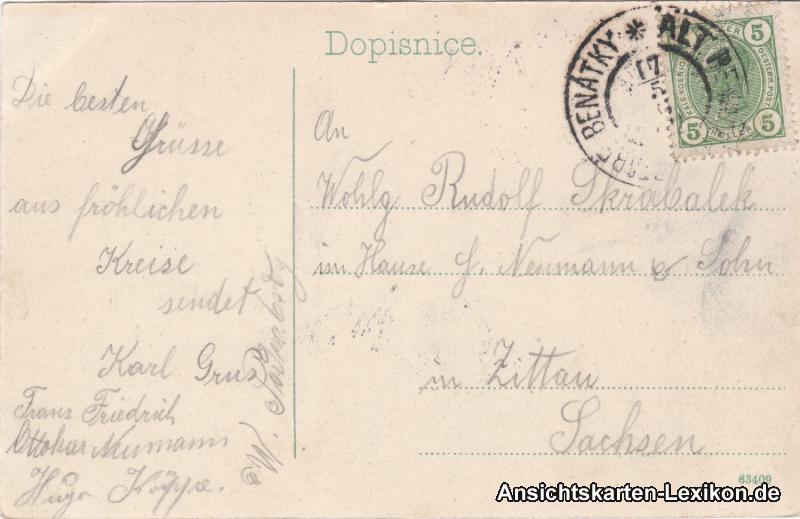 Dopisnice.
Die besten
Grüsse
aus fröhlichen
Kreise
sendet
Karl Grus
Franz Friedrich
Ottokar Neumann
Hugo Köppe.
W.
An
Wohlg Rudolf Skrabalek
im Hause H. Neumann & Sohn
in Zittau
Sachsen
BENÁTKY * ALT
5 5
5 5
HELLER
63409
Ansichtskarten-Lexikon.de